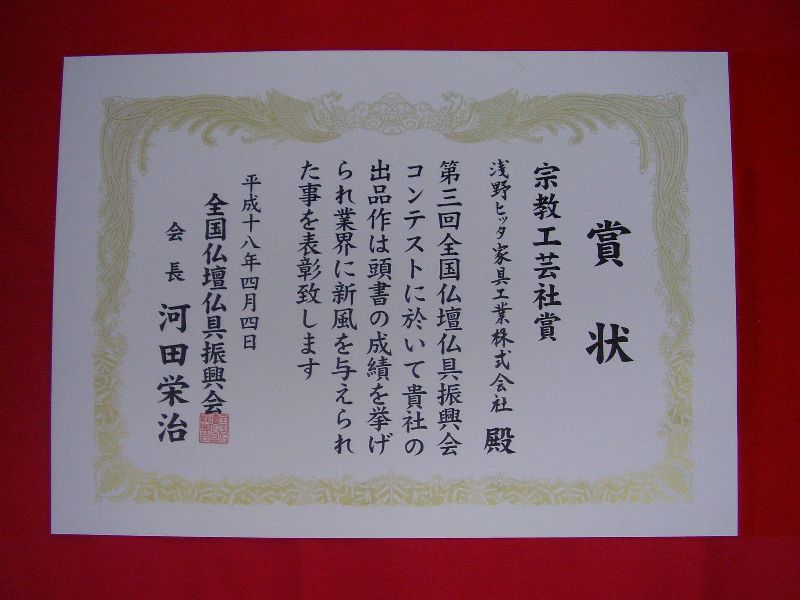 賞状
宗教工芸社賞
浅野ヒッタ家具工業株式会社 殿
第三回全国仏壇仏具振興会
コンテストに於いて貴社の
出品作は頭書の成績を挙げ
られ業界に新風を与えられ
た事を表彰致します
平成十八年四月四日
全国仏壇仏具振興会
会長 河田栄治